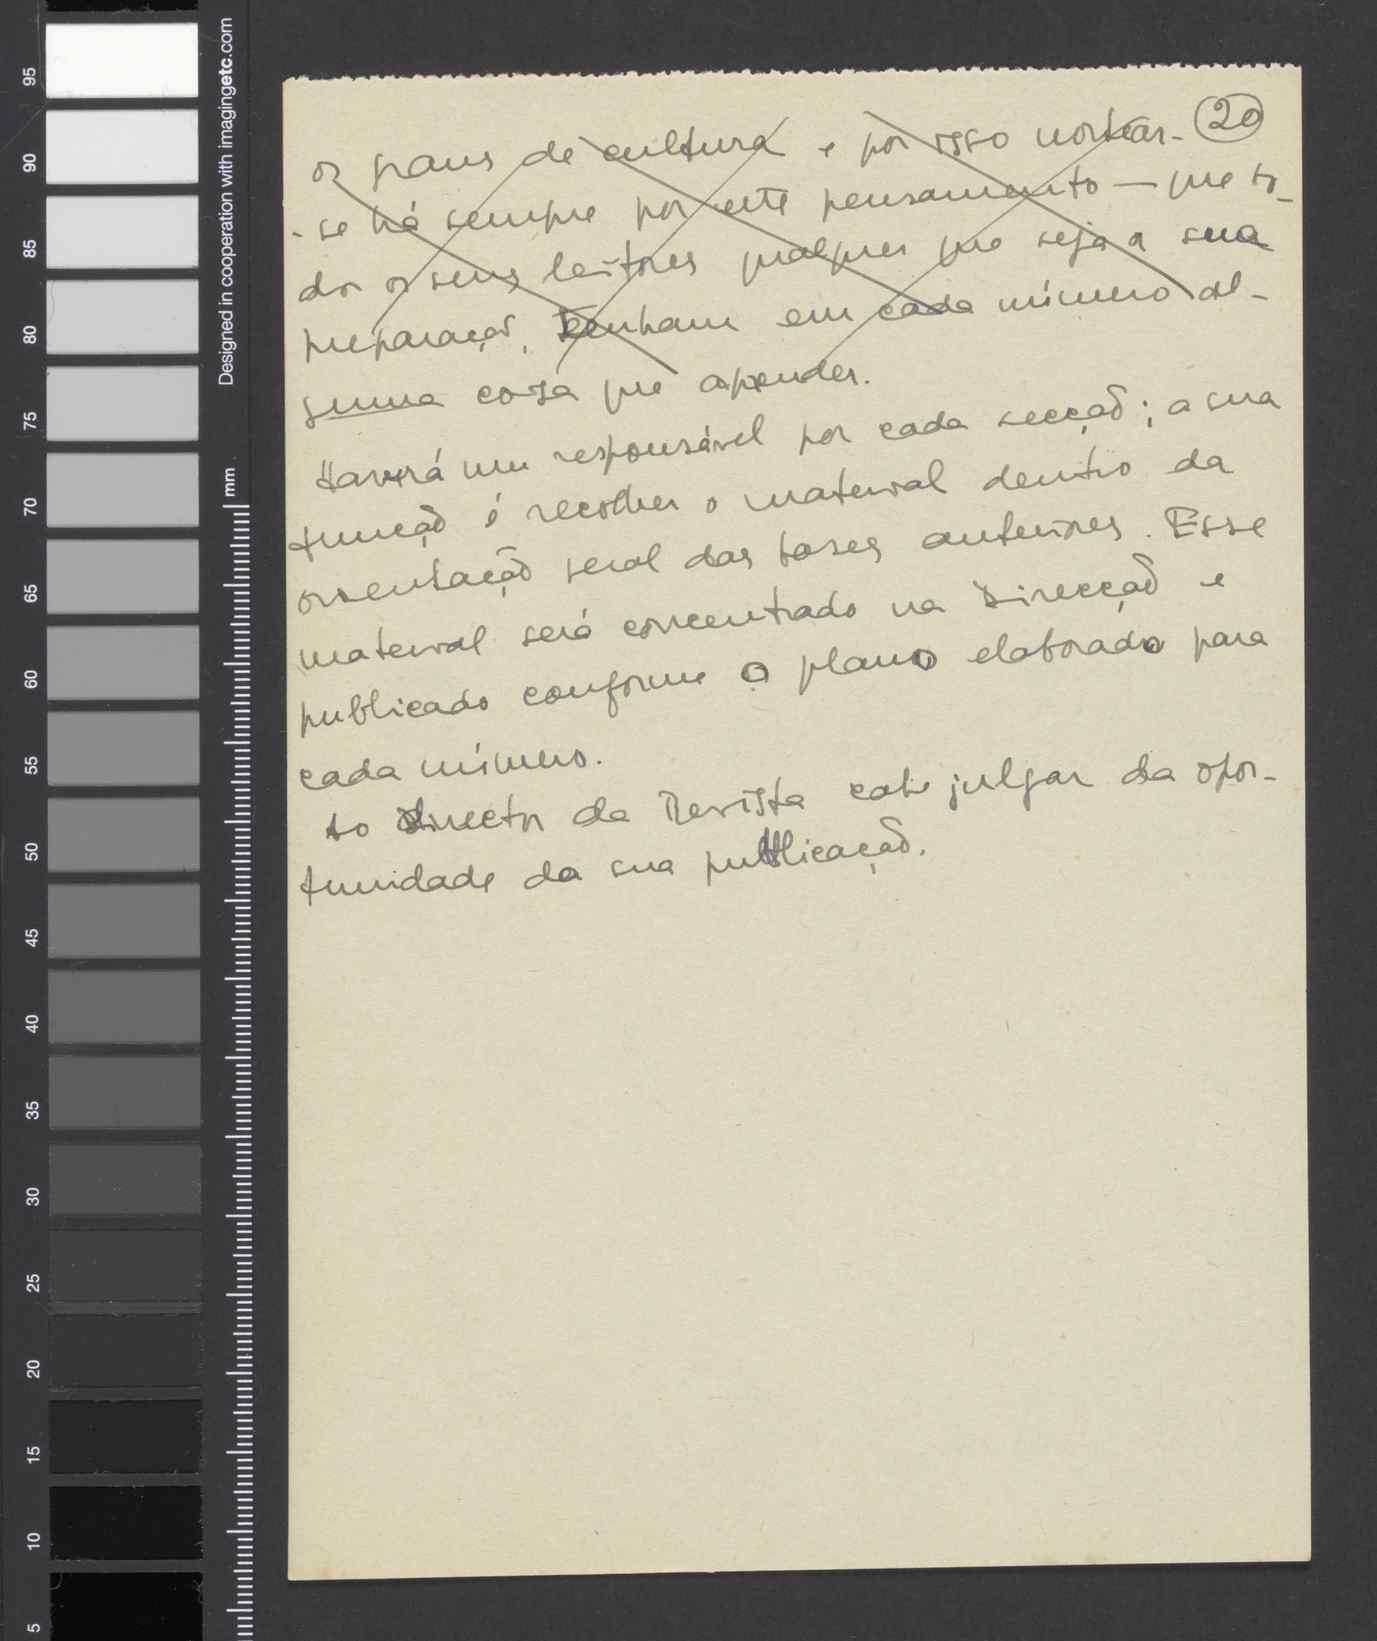 os graus de cultura e por isso nortear- 20
-se há sempre por este pensamento — que to-
dos os seus leitores qualquer que seja a sua
preparação, tenham em cada número al-
guma coisa que aprender.
Haverá um responsável por cada secção; a sua
função é recolher o material dentro da
orientação geral das bases anteriores. Esse
material será concentrado na Direcção e
publicado conforme o plano elaborado para
cada número.
Ao Director da Revista cabe julgar da opor-
tunidade da sua publicação.
Designed in cooperation with imagingetc.com
mm
95
90
85
80
75
70
65
60
55
50
45
40
35
30
25
20
15
10
5